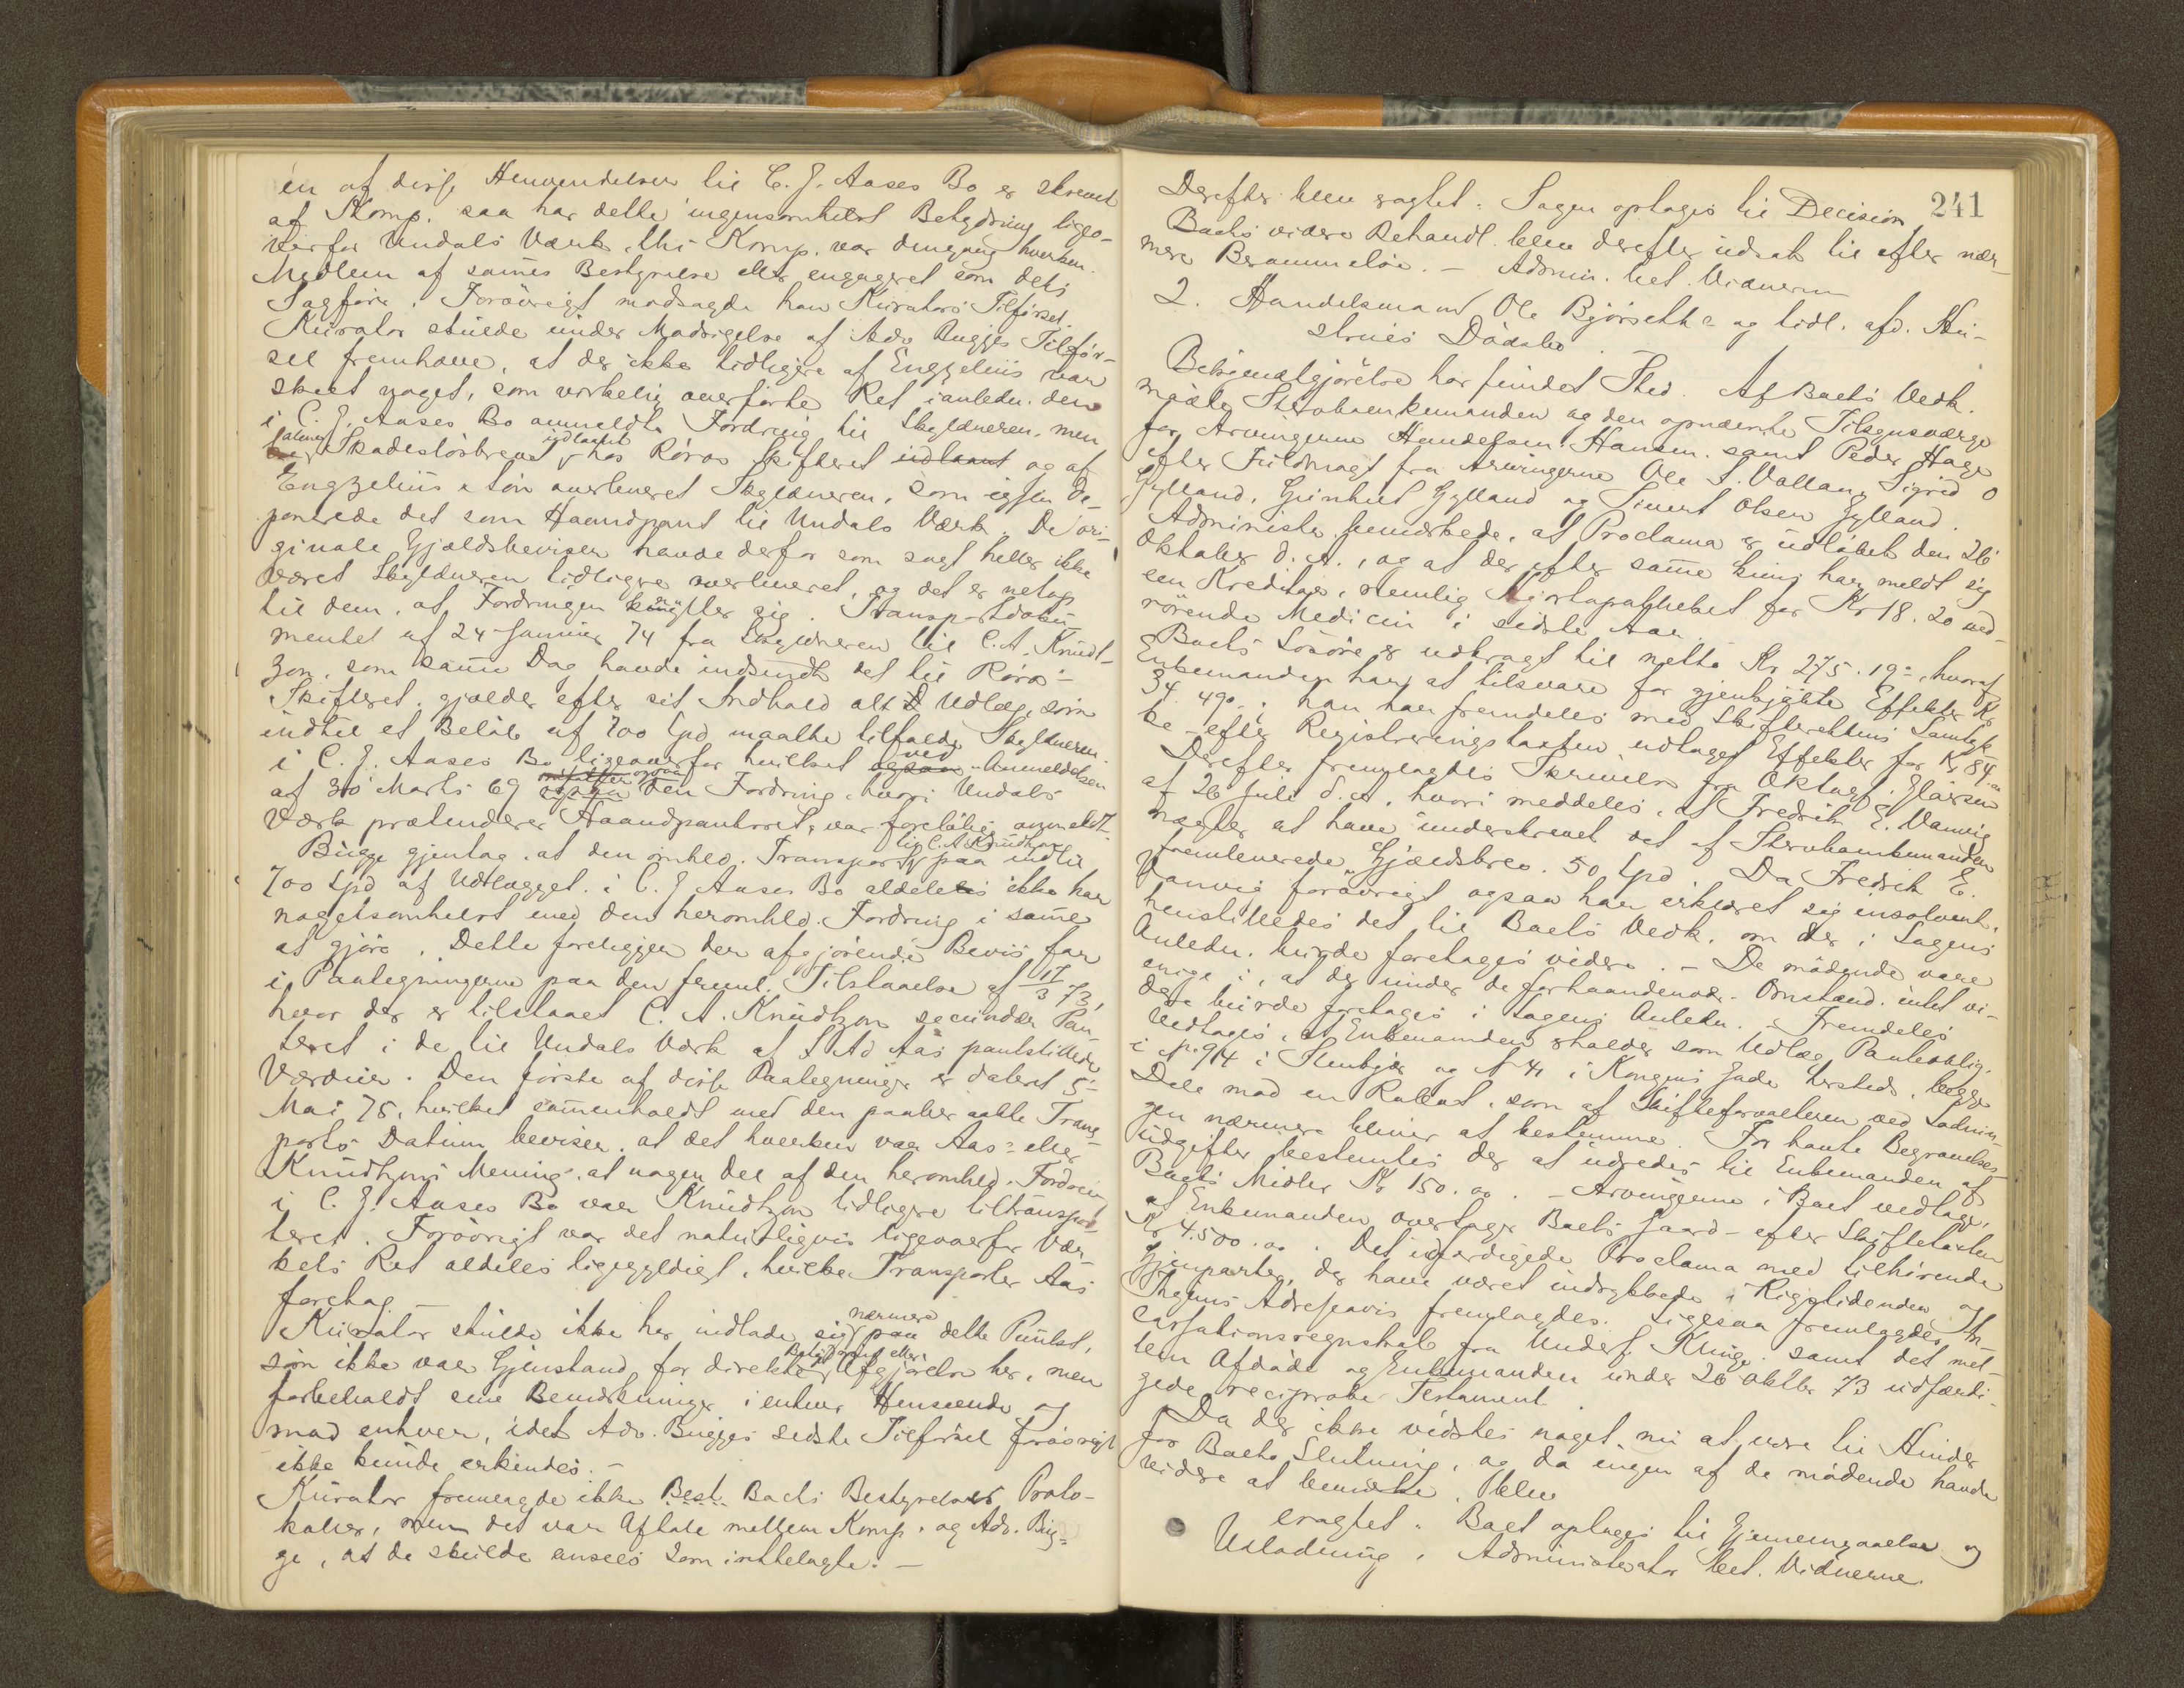 en af disse Henvendelser til C. J. Aases Bo er skrevet
af Komp. saa har dette ingensomhelst Betydning ligeo-
verfor Undals Værk, thi Komp. var dengang hverken
Medlem af sammes Bestyrelse eller engageret som dets
Sagfører. Forøvrigt modsagde han Kurators Tilførsel.
Kurator skulde under Modsigelse af Adv. Bugges Tilfør-
sel fremhæve, at der ikke tidligere af Engzelius var
skeet noget, som virkelig overførte Ret i anledn. den
i C. J. Aases Bo anmeldte Fordring til Skyldneren, men
Skadesløsbrevet udlaant hos Røros Skifteret udlaant og af
Engzelius & Søn overleveret Skyldneren, som igjen de-
ponerede det som Haandpant til Undals Værk. De ori-
ginale Gjældsbeviser havde derfor som sagt heller ikke
været Skyldneren tidligere overleveret, og det er netop
til dem, at Fordringen knytter sig. Transportdoku-
mentet af 24 Januar 74 fra Skyldneren til C. A. Knudt-
zon, som samme Dag havde indsendt det til Røros
Skifteret, gjælder efter sit Indhold alt Udlæg, som
indtil et Beløb af 700 Spd maatte tilfalde Skyldneren
i C. J. Aases Bo ligeoverfor hvilket ogsaa ved Anmeldelsen
af 30 Marts 69 ogsaa den Fordring, hvori Undals
Værk prætenderer Haandpantret, var foreløbig anmeldt.
Bugge gjentog, at den omhlo. Transport til C. A. Knudtzon paa indtil
700 Spd af Udlægget i C. J. Aases Bo aldeles ikke har
nogetsomhelst med den heromhlo. Fordring i samme
at gjøre. Dette foreligger den afgjørende Bevis for
i Paategningerne paa den fremt. Tilstaaelse af 17/3 73,
hvor der er tilstaaet C. A. Knudtzon secundær Pan-
teret i de til Undals Værk af S. Ad Aas pantstillede
Værdier. Den første af disse Paategninger er dateret 5
Mai 75, hvilket sammenholdt med den paaberaabte Trans-
ports Datum beviser, at det hverken var Aas' eller
Knudtzons Mening, at nogen Del af den heromhlo. Fordring
i C. J. Aases Bo var Knudtzon tidligere tiltranspor-
teret. Forøvrigt var det naturligvis ligeoverfor Vær-
kets Ret aldeles ligegyldigt, hvilke Transporter Aas
foretog. —
Kurator skulde ikke her indlade sig nærmere paa dette Punkt,
som ikke var Gjenstand for direkte Afgjørelse her, men
forbeholdt sine Bemærkninger i enhver Henseende og
mod enhver, idet Adv. Bugges sidste Tilførsel forøvrigt
ikke kunde erkjendes. —
Kurator fremlagde ikke Best. Boets Bestyrelses Proto-
koller, men det var Aftale mellem Komp. og Adv. Bug-
ge, at de skulde ansees som irettelagte. —
241
Derefter blev eragtet: Sagen optages til Decision
Boets videre Behandl. blev derefter udsat til efter nær-
mere Berammelse. — Admin. bet. Vidnerne
2. Handelsmand Ole Bjørseth & og tidl. afd. Hu-
strues Dødsbo. —
Bekjendtgjørelse har fundet Sted. Af Boets Vedk.
mødte Stervboenkemanden og den opnævnte Tilsynsværge
for Arvingerne Handelsm. Hansen, samt Peder Hage
efter Fuldmagt fra Arvingerne Ole S. Vollan, Sigrid O
Gylland, Gunhild Gylland og Sivert Olsen Gylland.
Administr. bemærkede, at Proclama er udløbet den 26
Oktober d. A., og at der efter samme kun har meldt sig
een Kreditor, nemlig Hjorteapotheket for Kr 18.20 ved-
rørende Medicin i sidste Aar.
Boets Løsøre er udbragt til netto Kr 275.19, hvoraf
Enkemanden har at tilsvare for gjenkjøbte Effekter Kr
34.49, han har fremdeles med Skifterettens Samtyk-
ke efter Registreringstaxten udtaget Effekter for Kr 84.
Derefter fremlagdes Skrivelse fra
af 26 Juli d. A., hvori meddeles, at Fredrik E. Vanvig
nægter at have underskrevet det af Stervboenkemanden
fremleverede Gjældsbrev 50 Spd. Da Fredrik E.
Vanvig forøvrigt ogsaa har erklæret sig insolvent,
henstilledes det til Boets Vedk. om der i Sagens
Anledn. burde foretages videre. — De mødende vare
enige i, at der under de forhaandenvær. Omstænd. intet vi-
dere burde foretages i Sagens Anledn. Fremdeles
vedtages, at Enkemanden erholder som Udlæg Panteoblig.
i No 914 i Stenkjær og No 41 i Kongens Gade , begge
Dele mod en Rabat, som af Skifteforvalteren ved Lodnin-
gen nærmere bliver at bestemme. For havte Begravelses-
udgifter bestemtes der at udredes til Enkemanden af
Boets Midler Kr 150.00. — Arvingerne i Boet vedtage,
at Enkemanden overtager Boets Gaard efter Skiftetaxten
Kr 4.500.00. Det udfærdigede Proclama med tilhørende
Gjenparter, der have været indrykkede i Rigstidenden og
Thjems Adresseavis fremlagdes. Ligesaa fremlagdes In-
cassationsregnskab fra Underf. Klinge samt det mel-
lem Afdøde og Enkemanden under 26 Oktbr 73 udfærdi-
gede reciproke Testament.
Da der ikke vidstes noget nu at være til Hinder
for Boets Slutning, og da ingen af de mødende havde
videre at bemærke, blev
eragtet: Boet optages til Gjennemgaaelse og
Udlodning. Administrator bet. Vidnerne.